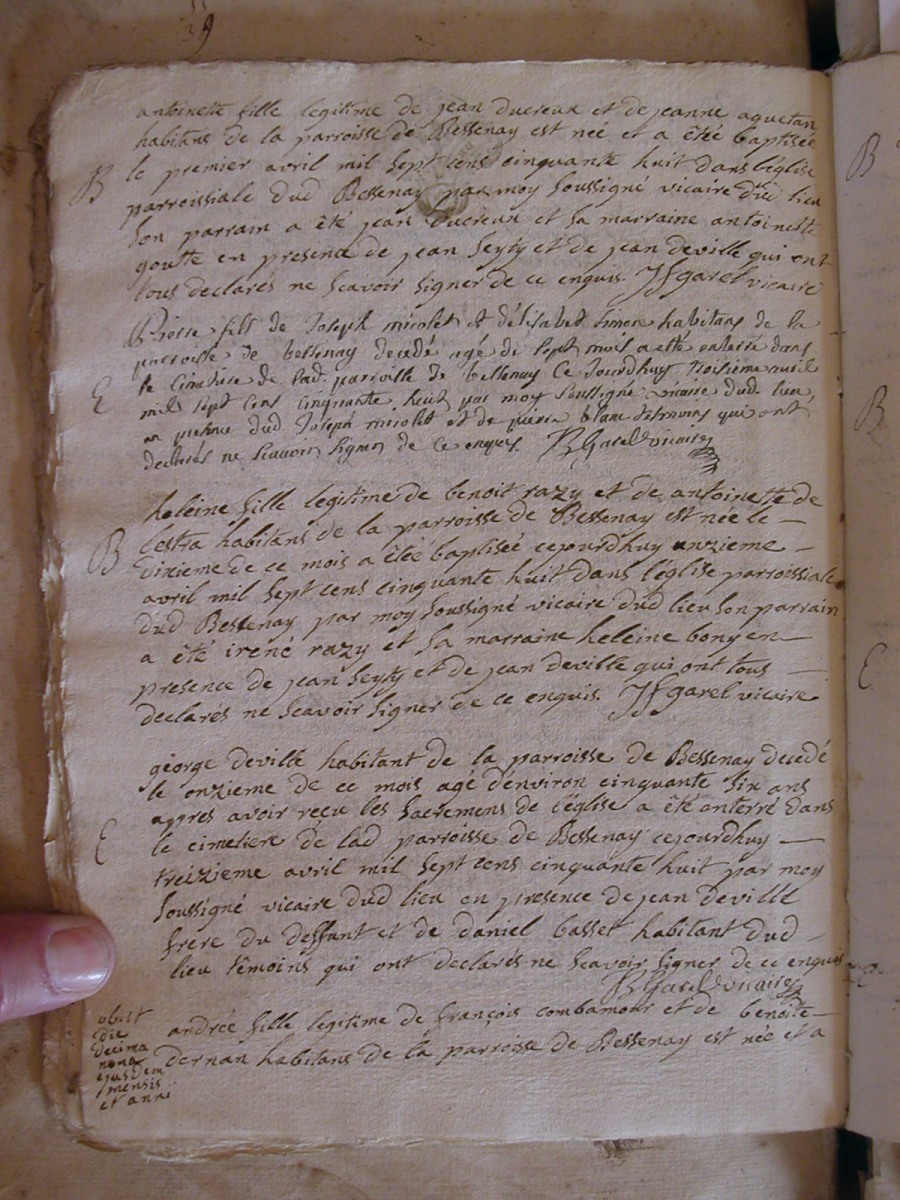 39
antoinette fille legitime de jean ducreux et de jeanne aguetan
habitans de la parroisse de Bessenay est née et a été baptisée
B
le premier avril mil sept cens cinquante huit dans l'église
parroissiale dud Bessenay par moy soussigné vicaire dud lieu
son parrain a été jean ducreux et sa marraine antoinette
goutte en presence de jean seyty et de jean deville qui ont
tous declarés ne scavoir signer de ce enquis. Jf garel vicaire
Pierre fils de Joseph micolet et d'Elisabet Simon habitans de la
parroisse de bessenay decedé agé de sept mois a etté enterré dans
E
le Cimetiere de lad. parroisse de bessenay Ce Jourdhuy troisieme avril
mil sept cens cinquante huit par moy soussigné vicaire dud. lieu,
en presence dud Joseph micolet et de pierre blanc temoins qui ont
declarés ne scavoir signer de ce enquis. Jf Garel vicaire
heleine fille legitime de benoit razy et de antoinette de
lestra habitans de la parroisse de Bessenay est née le
B
dixieme de ce mois a étée baptisée cejourdhuy unzieme
avril mil sept cens cinquante huit dans l'église parroissiale
dud Bessenay par moy soussigné vicaire dud lieu son parrain
a été irené razy et sa marraine heleine bony en
presence de jean seyty et de jean deville qui ont tous
declarés ne scavoir signer de ce enquis. Jf garel vicaire
géorge deville habitant de la parroisse de Bessenay decedé
le onzieme de ce mois agé d'environ cinquante six ans
appres avoir reçu les sacremens de l'église a été anterré dans
E
le cimetiere de lad parroisse de Bessenay cejourdhuy
treizieme avril mil sept cens cinquante huit par moy
soussigné vicaire dud lieu en presence de jean deville
frere du deffunt et de daniel basset habitant dud
lieu témoins qui ont declarés ne scavoir signer de ce enquis
Jf Garel vicaire
obiit
die
decima
nona
ejusdem
mensis
et anni
andrée fille legitime de françois combamour et de benoite
dernan habitans de la parroisse de Bessenay est née et a
B
B
E